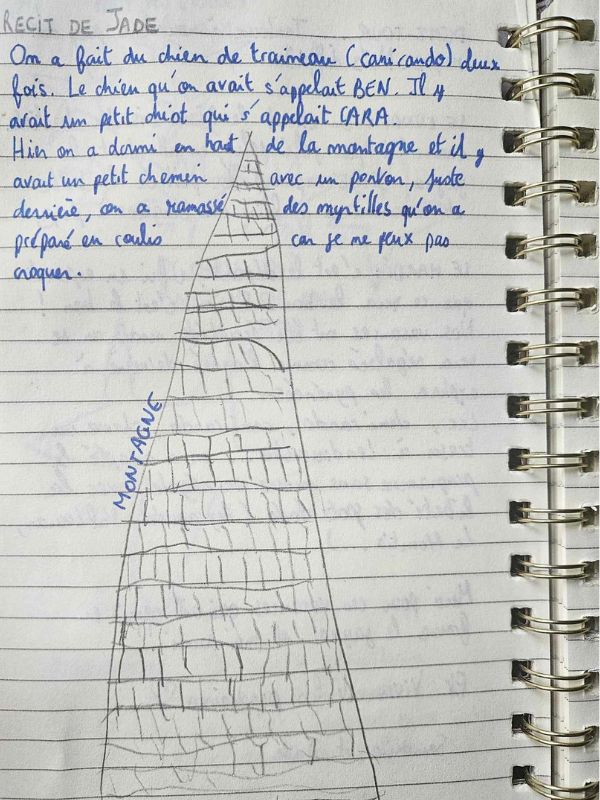 RECIT DE JADE
On a fait du chien de traineau (canicando) deux
fois. Le chien qu'on avait s'appelait BEN. Il y
avait un petit chiot qui s'appelait CARA.
Hier on a dormi en haut de la montagne et il y
avait un petit chemin avec un ponton, juste
derrière, on a ramassé des myrtilles qu'on a
préparé en coulis car je ne peux pas
croquer.
MONTAGNE